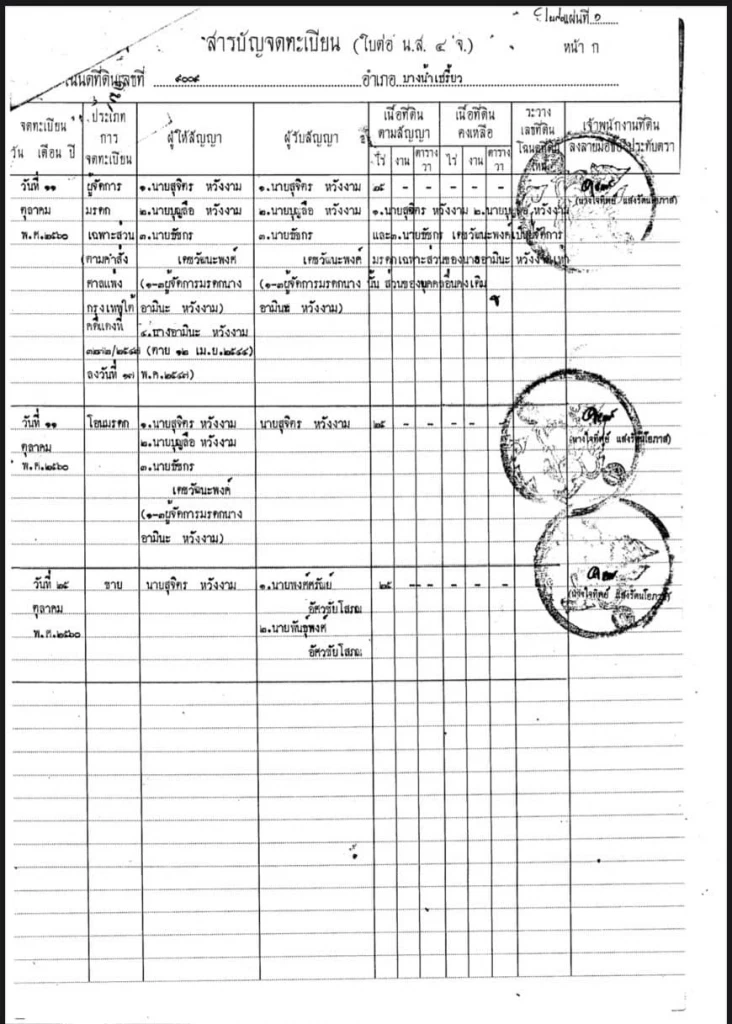 แผ่นที่ ๑
สารบัญจดทะเบียน (ใบต่อ น.ส. ๔ จ.)
หน้า ก
โฉนดที่ดินเลขที่ ๙๐๐๙ อำเภอ บางน้ำเปรี้ยว
จดทะเบียน
วัน เดือน ปี
ประเภท
การ
จดทะเบียน
ผู้ให้สัญญา
ผู้รับสัญญา
เนื้อที่ดิน
ตามสัญญา
ไร่ งาน ตาราง
วา
เนื้อที่ดิน
คงเหลือ
ไร่ งาน ตาราง
วา
ระวาง
เลขที่ดิน
โฉนดที่ดิน
ใหม่
เจ้าพนักงานที่ดิน
ลงลายมือชื่อ ประทับตรา
วันที่ ๑๑ ผู้จัดการ ๑.นายสุจิตร หวังงาม ๑.นายสุจิตร หวังงาม ๒๕ - - - - -
(นางใจทิพย์ แสงรัตนโอภาส)
ตุลาคม มรดก ๒.นายบุญลือ หวังงาม ๒.นายบุญลือ หวังงาม ๑.นายสุจิตร หวังงาม ๒.นายบุญลือ หวังงาม
พ.ศ.๒๕๖๐ เฉพาะส่วน ๓.นายธัชกร ๓.นายธัชกร และ๓.นายธัชกร เดชวัฒนะพงศ์เป็นผู้จัดการ
(ตามคำสั่ง เดชวัฒนะพงศ์ เดชวัฒนะพงศ์ มรดกเฉพาะส่วนของนางอามินะ หวังงามเท่า
ศาลแพ่ง (๑-๓ผู้จัดการมรดกนาง (๑-๓ผู้จัดการมรดกนาง นั้น ส่วนของบุคคลอื่นคงเดิม
กรุงเทพใต้ อามินะ หวังงาม) อามินะ หวังงาม)
คดีแดงที่ ๔.นางอามินะ หวังงาม
(ตาย ๑๒ เม.ย.๒๕๔๔)
ลงวันที่ ๑๗ พ.ค.๒๕๔๗)
วันที่ ๑๑ โอนมรดก ๑.นายสุจิตร หวังงาม นายสุจิตร หวังงาม ๒๕ - - - - -
(นางใจทิพย์ แสงรัตนโอภาส)
ตุลาคม ๒.นายบุญลือ หวังงาม
พ.ศ.๒๕๖๐ ๓.นายธัชกร
เดชวัฒนะพงศ์
(๑-๓ผู้จัดการมรดกนาง
อามินะ หวังงาม)
วันที่ ๒๕ ขาย นายสุจิตร หวังงาม ๑.นายพงศ์ศรัณย์ ๒๕ - - - - -
(นางใจทิพย์ แสงรัตนโอภาส)
ตุลาคม อัศวชัยโสภณ
พ.ศ.๒๕๖๐ ๒.นายพันธุ์พงศ์
อัศวชัยโสภณ